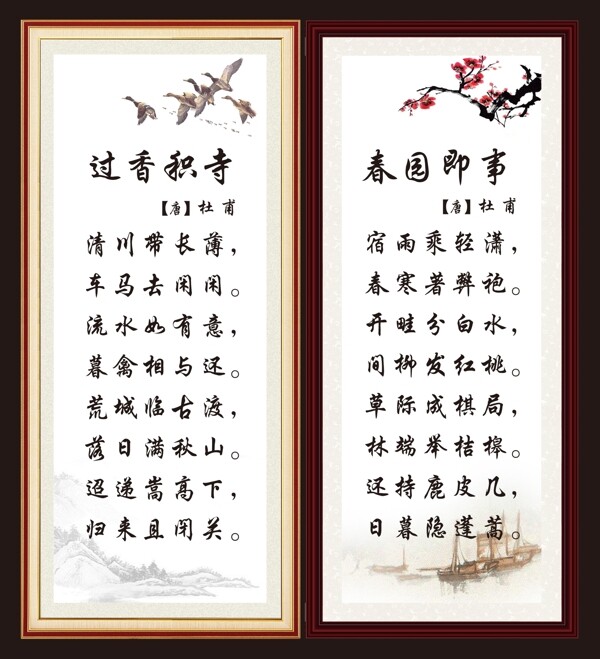 过香积寺
【唐】杜甫
清川带长薄，
车马去闲闲。
流水如有意，
暮禽相与还。
荒城临古渡，
落日满秋山。
迢递嵩高下，
归来且闭关。
春园即事
【唐】杜甫
宿雨乘轻潇，
春寒著弊袍。
开畦分白水，
间柳发红桃。
草际成棋局，
林端举桔槔。
还持鹿皮几，
日暮隐蓬蒿。